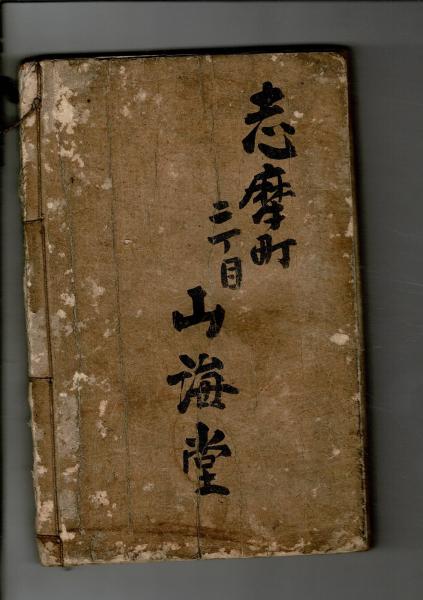 志摩町
二丁目
山海堂